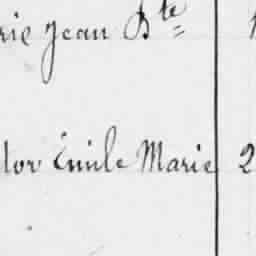 rie Jean Bte 1
tor Émile Marie 2